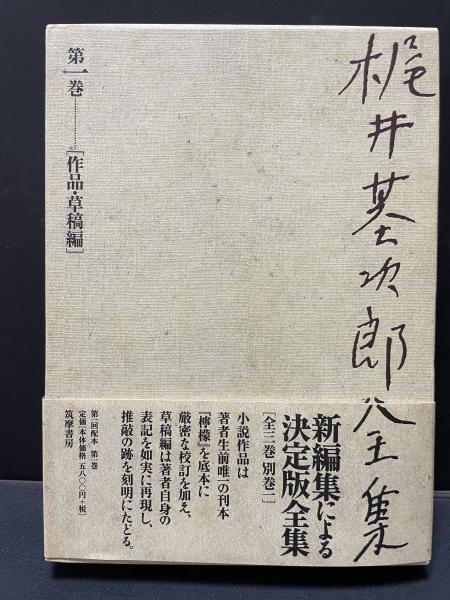 梶井基次郎全集
第一巻…………[作品・草稿編]
新編集による
決定版全集
[全三巻 別巻一]
小説作品は
著者生前唯一の刊本
『檸檬』を底本に
厳密な校訂を加え、
草稿編は著者自身の
表記を如実に再現し、
推敲の跡を刻明にたどる。
第一回配本 第一巻
定価(本体価格 五八〇〇円+税)
筑摩書房